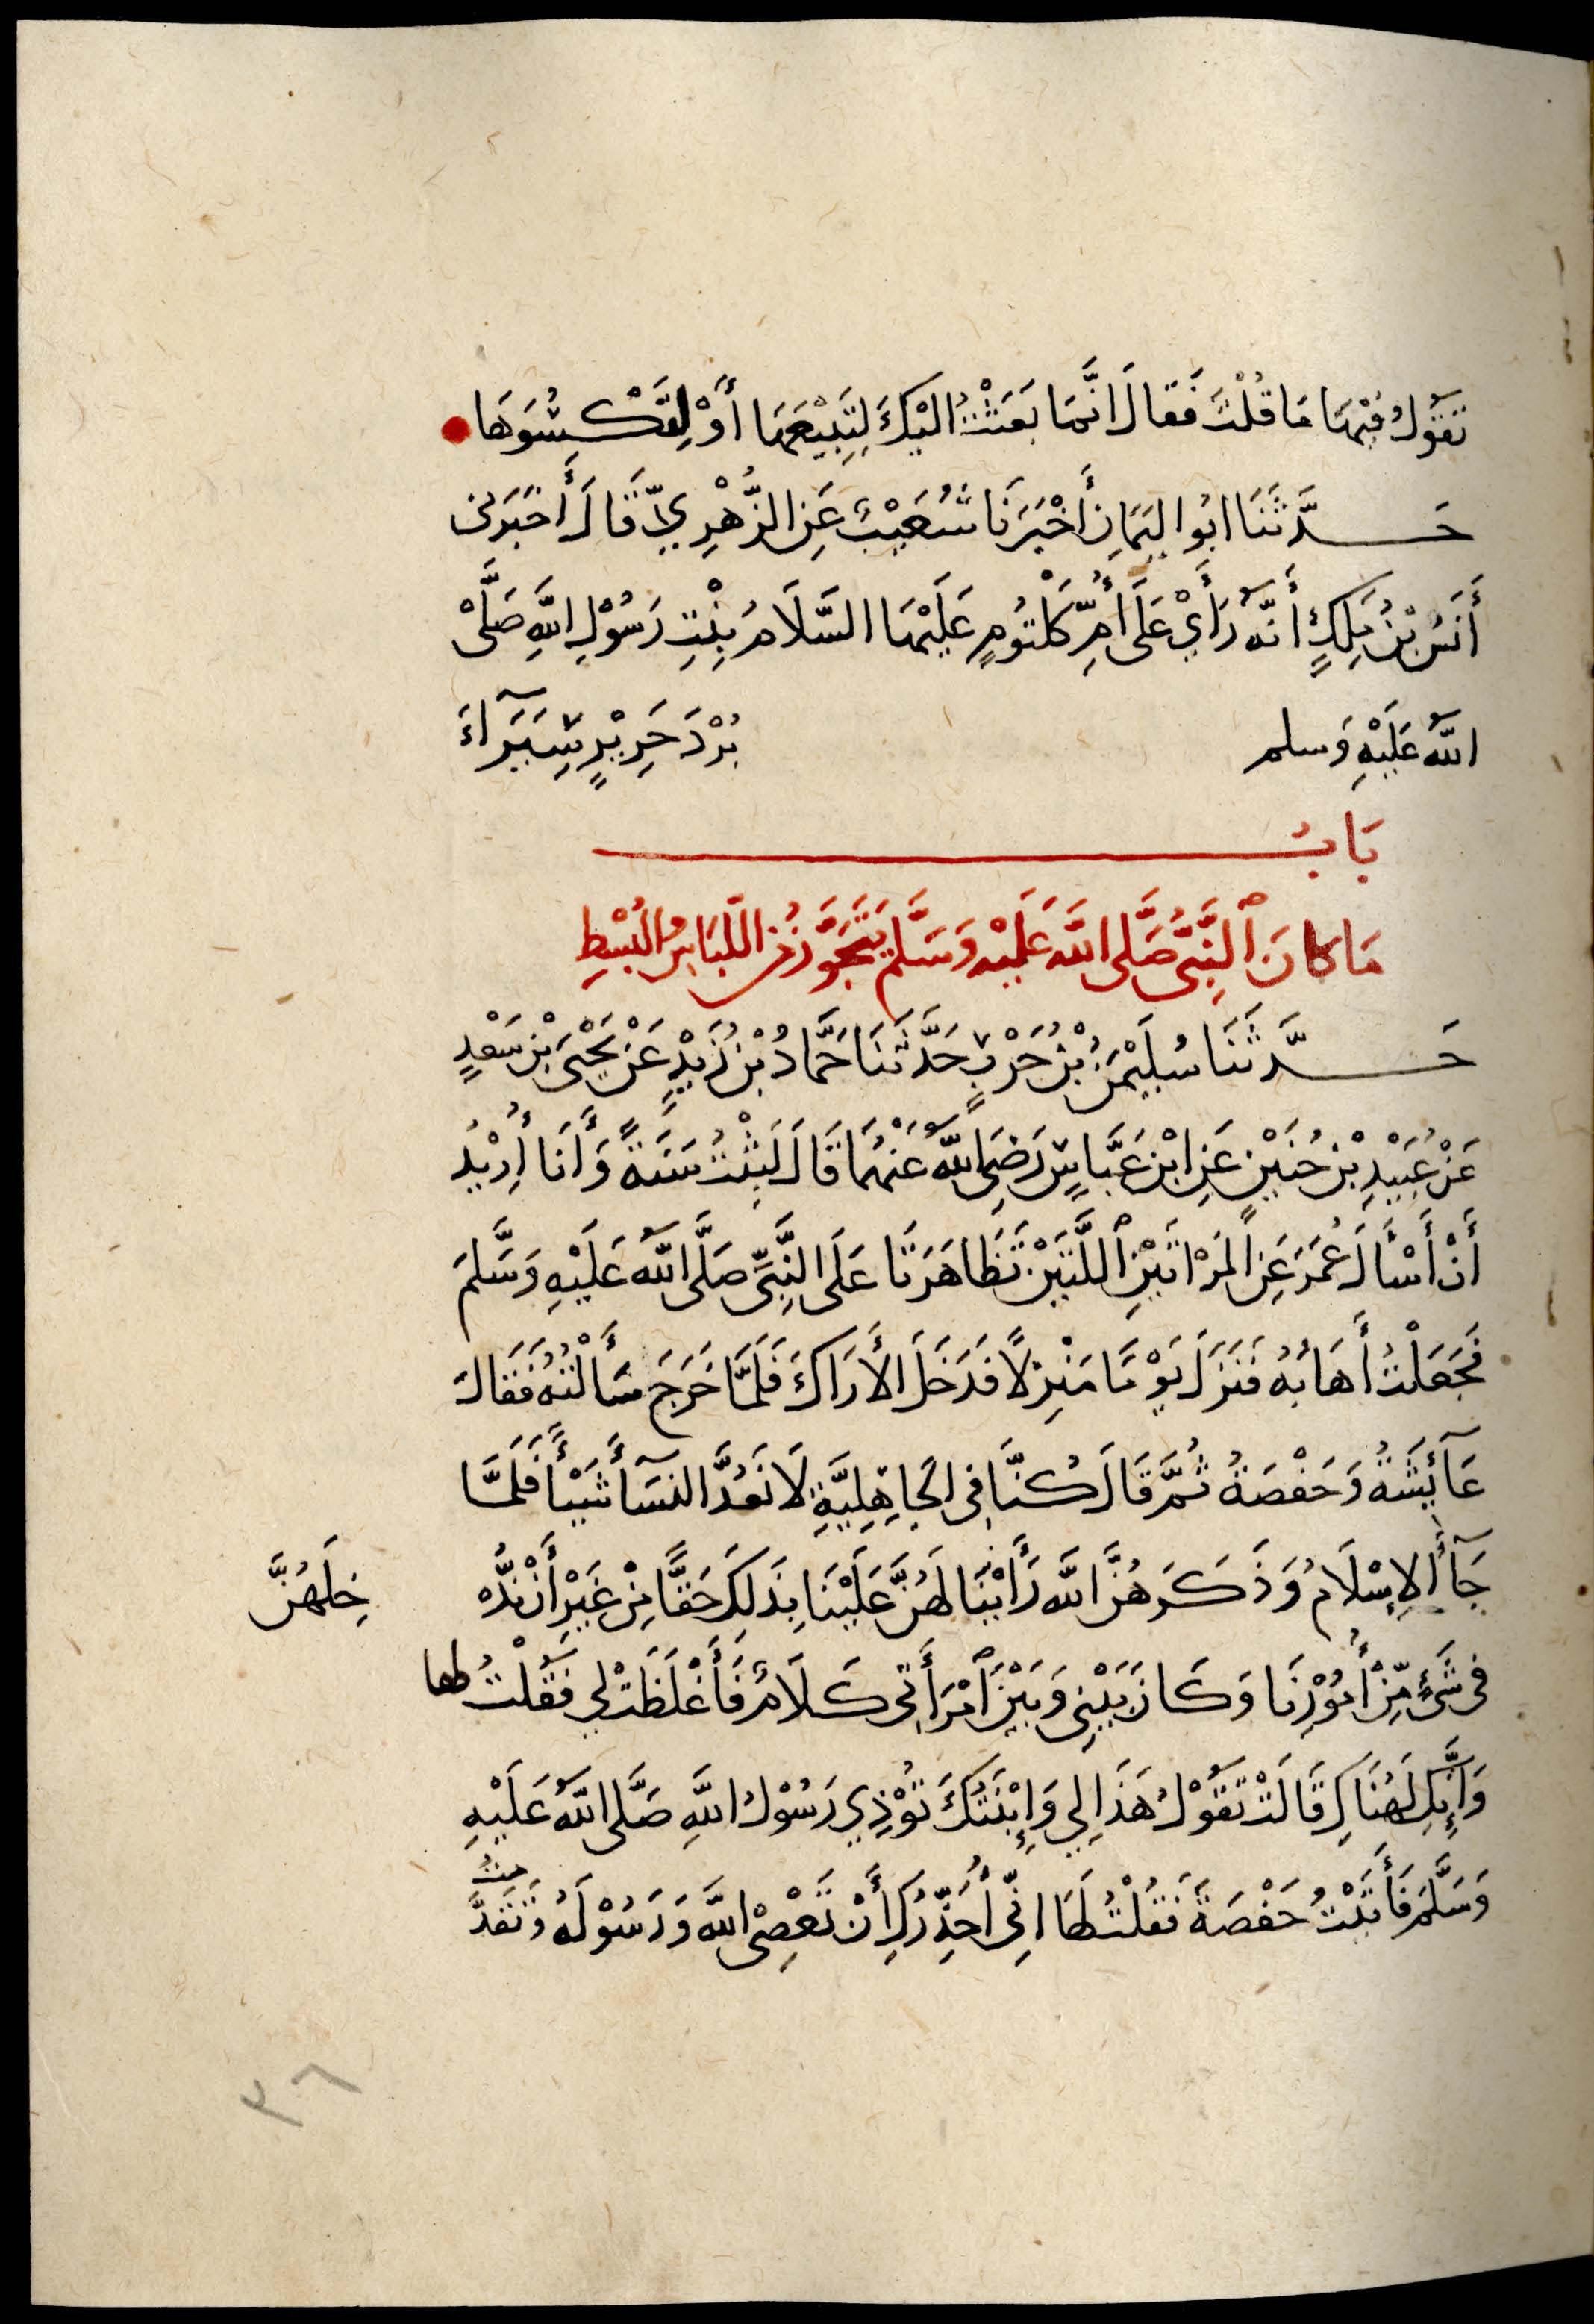 تَقُولُ فِيْهَا مَا قُلْتَ فَقَالَ انَّمَا بَعَثْتُ الَيْكَ لِتَبِيْعَهَا أَوْ لِتَكْسُوَهَا
حَدَّثَنَا ابُو الْيَمَانِ أَخْبَرَنَا شُعَيْبٌ عَنِ الزُّهْرِيِّ قَالَ أَخْبَرَنِي
أَنَسُ بْنُ مَلِكٍ أَنَّهُ رَأَيْ عَلَى أُمِّ كَلْثُومٍ عَلَيْهَا السَّلَامُ بِنْتِ رَسُوْلِ اللَّهِ صَلَّى
اللَّهُ عَلَيْهِ وَسلم بُرْدَ حَرِيْرٍ سِيَرَآءَ
بَابُ
مَا كَانَ ٱلنَّبِيُّ صَلَّى اللَّهُ عَلَيْهِ وَسَلَّمَ يَتَجَوَّزُ مِنَ اللِّبَاسِ وَالْبُسْطِ
حَدَّثَنَا سُلَيْمَنُ بْنُ حَرْبٍ حَدَّثَنَا حَمَّادُ بْنُ زَيْدٍ عَنْ يَحْيَى بْنِ سَعْدٍ
عَنْ عُبَيْدِ بْنِ حُنَيْنٍ عَنِ ابْنِ عَبَّاسٍ رَضِيَ اللَّهُ عَنْهُمَا قَالَ لَبِثْتُ سَنَةً وَأَنَا أُرِيْدُ
أَنْ أَسْأَلَ عُمَرَ عَنِ الْمَرْاتَيْنِ ٱللَّتَيْنِ تَظَاهَرَتَا عَلَى النَّبِيِّ صَلَّى اللَّهُ عَلَيْهِ وَسَّلَمَ
فَجَعَلْتُ أَهَابُهُ فَنَزَلَ يَوْمًا مَنْزِلًا فَدَخَلَ الأَرَاكَ فَلَمَّا خَرَجَ سَأَلْتُهُ فَقَالَ
عَآئِشَةُ وَحَفْصَةُ ثُمَّ قَالَ كُنَّا فِي الْجَاهِلِيَّةِ لَا نَعُدُّ النِّسَآءَ شَيْئًا فَلَمَّا
جَآءَ الإِسْلَامُ وَذَكَرَهُنَّ اللَّهُ رَأَيْنَا لَهُنَّ عَلَيْنَا بِذَلِكَ حَقًّا مِنْ غَيْرِ أَنْ نُدْ
خِلَهُنَّ
فِي شَيْءٍ مِّنْ أُمُوْرِنَا وَكَانَ بَيْنِي وَبَيْنَ ٱمْرَأَتِي كَلَامٌ فَأَغْلَظَتْ لِي فَقُلْتُ لها
وَإِنَّكِ لَهُنَاكِ قَالَتْ تَقُوْلُ هَذَا لِي وَإِبْنَتُكَ تُوْذِي رَسُوْلَ اللَّهِ صَلَّى اللَّهُ عَلَيْهِ
وَسَلَّمَ فَأَتَيْتُ حَفْصَةَ فَقُلْتُ لَهَا انِّي أُحَذِّرُكِ أَنْ تَعْصِي اللَّهَ وَرَسُوْلَهُ وَتَقَدَّ
مْتُ
٣٦